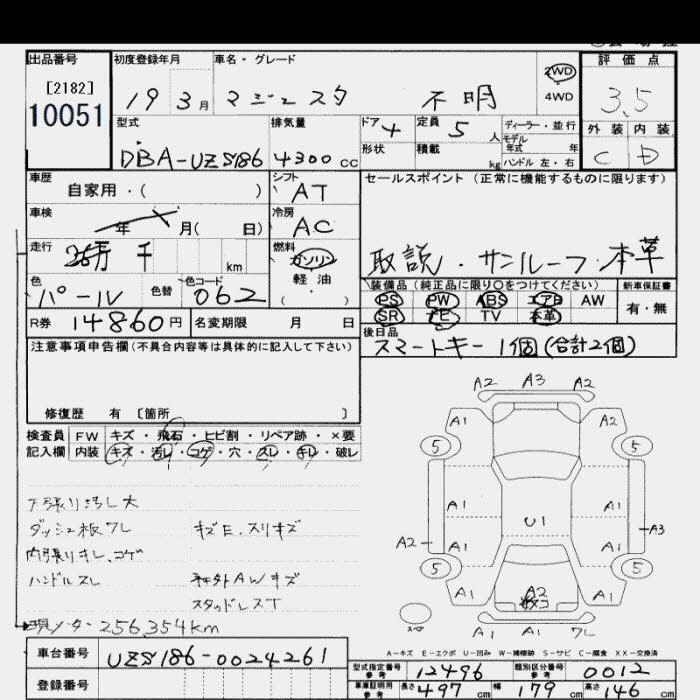 出品番号
[2182]
10051
初度登録年月
19 3月
車名・グレード
マジェスタ 不明
2WD
4WD
評価点
3.5
外装 内装
C D
型式
DBA-UZS186
排気量
4300cc
ドア 4
定員 5人
形状
積載 kg
ディーラー・並行
モデル年式 年
ハンドル 左・右
車歴
自家用・( )
シフト
AT
セールスポイント (正常に機能するものに限ります)
取説・サンルーフ・本革
車検
年 月( 日)
冷房
AC
走行
千 km
燃料
ガソリン
軽油
( )
色
パール
色替
色コード
062
装備品(純正品に限り○をつけてください)
PS PW ABS エアB AW
SR TV 本革
新車保証書
有・無
R券 14860円
名変期限 月 日
後日品
スマートキー1個(合計2個)
注意事項申告欄(不具合内容等は具体的に記入して下さい)
修復歴 有 [箇所 ]
検査員記入欄
FW キズ・飛石・ヒビ割・リペア跡・×要
内装 キズ・汚レ・コゲ・穴・スレ・キレ・破レ
汚レ大
ダッシュ板ワレ
キズE、スリキズ
内張りキレ、コゲ
ハンドルスレ
AWキズ
スタッドレスT
現メーター256,354km
A2 A3 A2
A1 A2
5 5
A1 A1
U1
A2 A3
A1 A1
5 5
A1 A2 A1
A1 A1 ワレ
スペ
A-キズ E-エクボ U-凹み W-補修跡 S-サビ C-腐食 XX-交換済
車台番号
UZS186-0024261
登録番号
型式指定番号
参考
12496
類別区分番号
参考
0012
車庫証明用
参考
長さ 497cm
幅 179cm
高さ 146cm